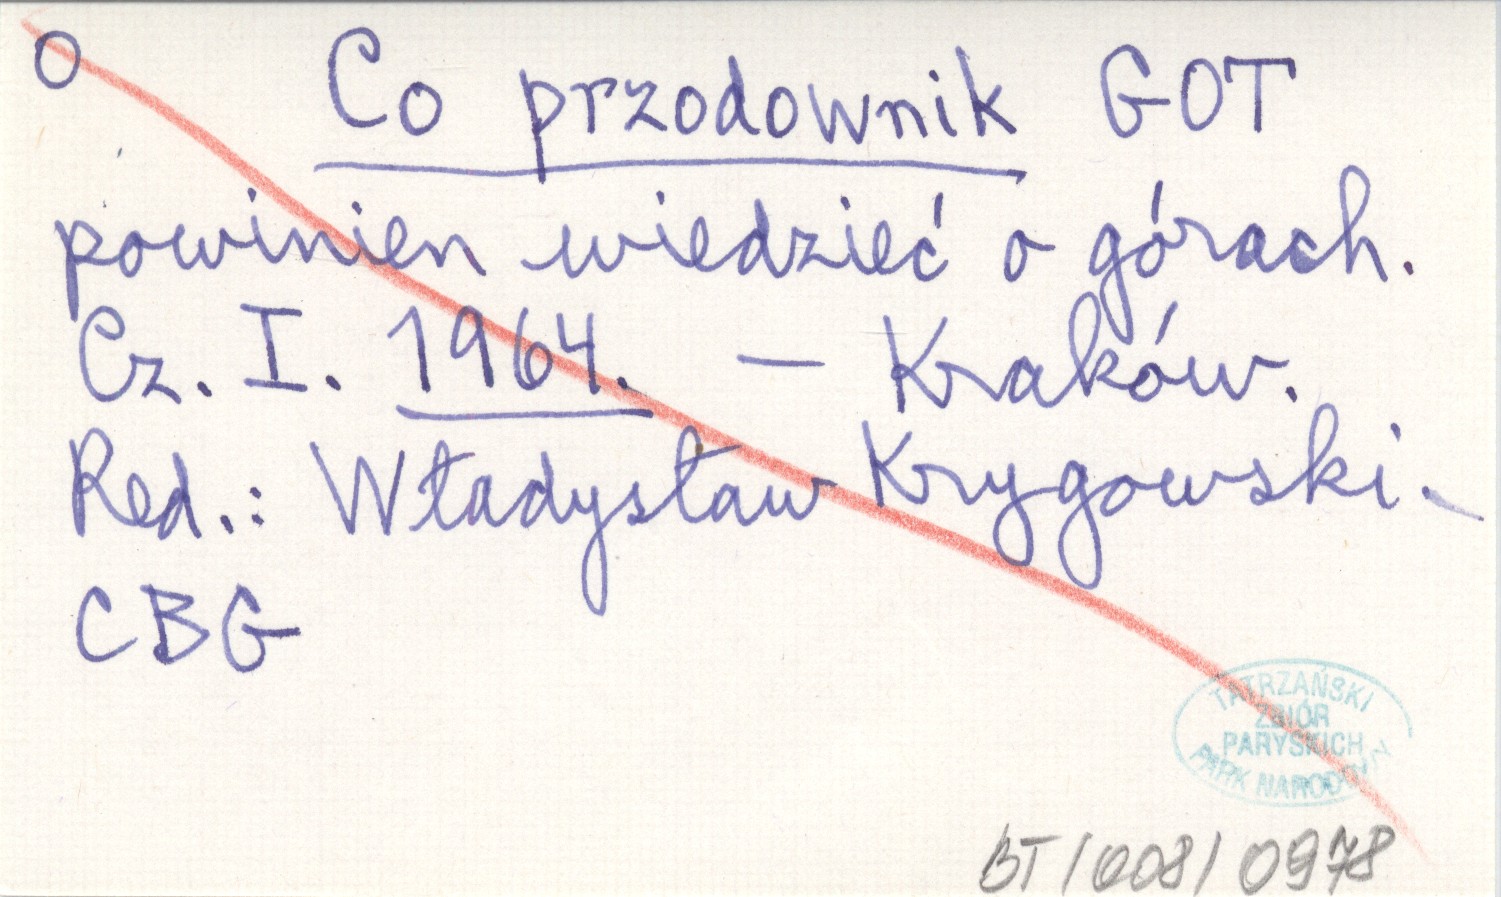 O Co przodownik GOT
powinien wiedzieć o górach.
Cz. I. 1964. — Kraków.
Red.: Władysław Krygowski.
CBG
TATRZAŃSKI
ZBIÓR
PARYSKICH
PARK NARODOWY
BT/008/0978